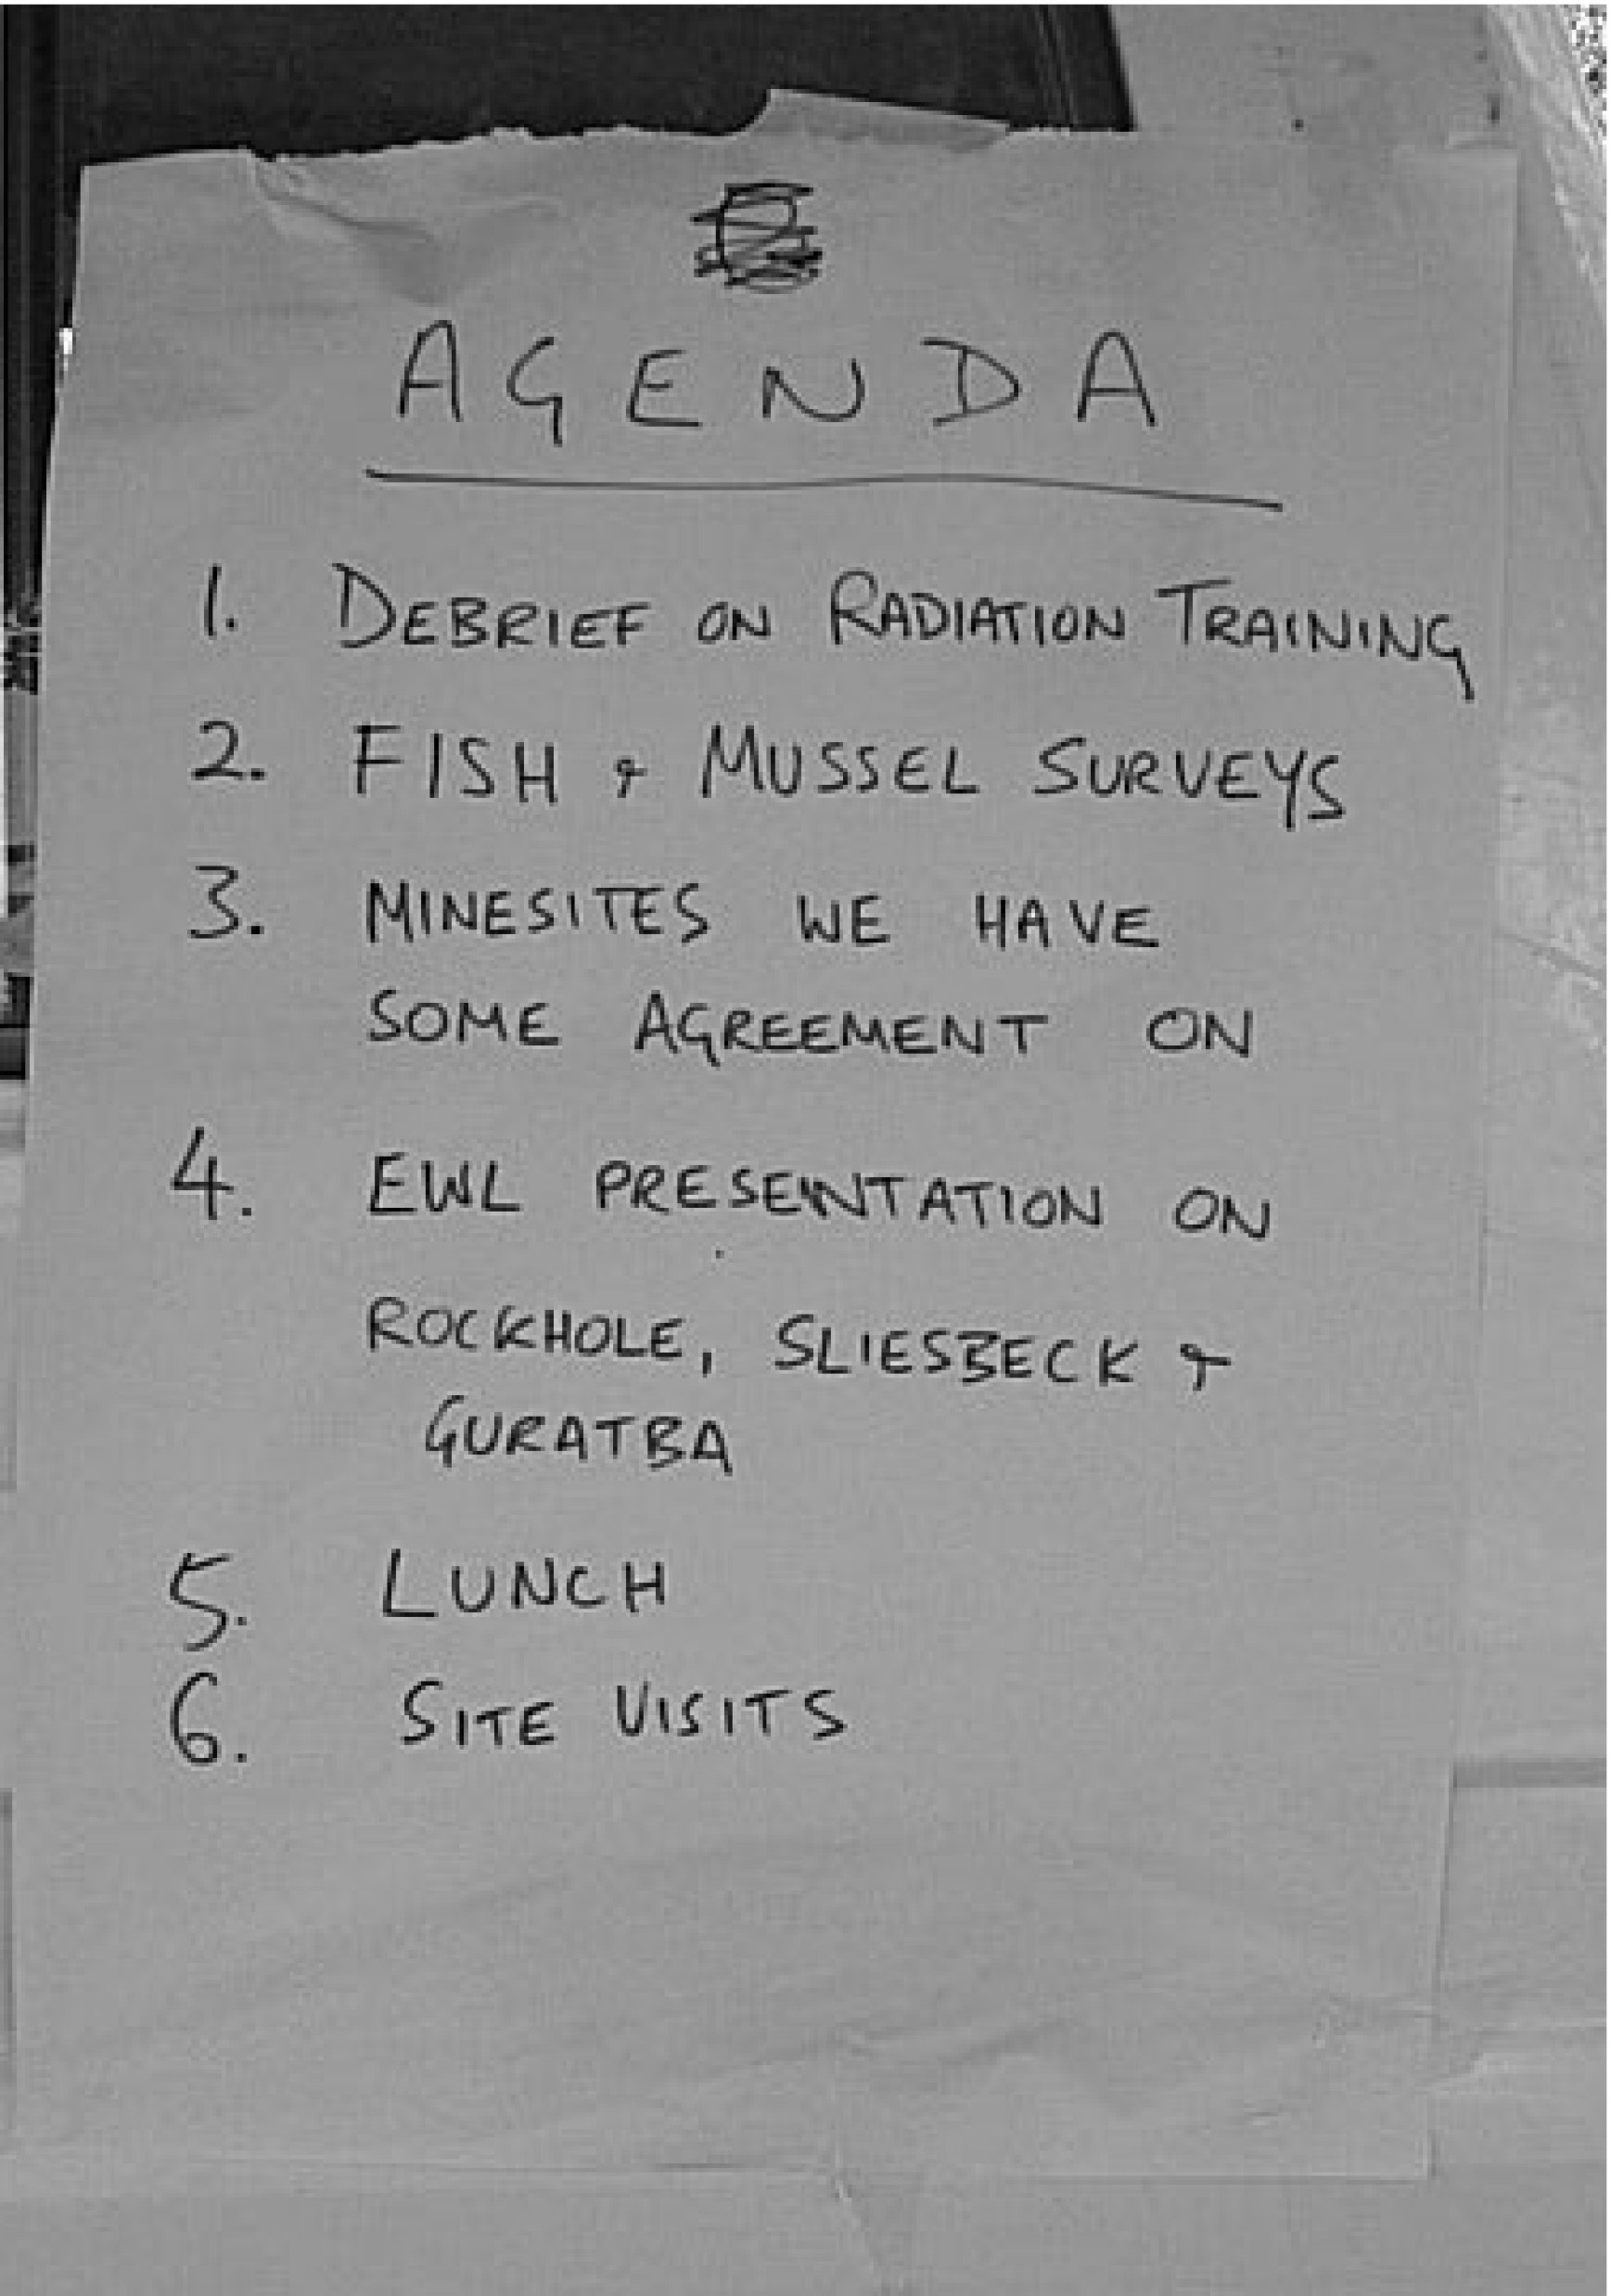 AGENDA
1. DEBRIEF ON RADIATION TRAINING
2. FISH & MUSSEL SURVEYS
3. MINESITES WE HAVE
SOME AGREEMENT ON
4. EWL PRESENTATION ON
ROCKHOLE, SLIESBECK &
GURATBA
5. LUNCH
6. SITE VISITS